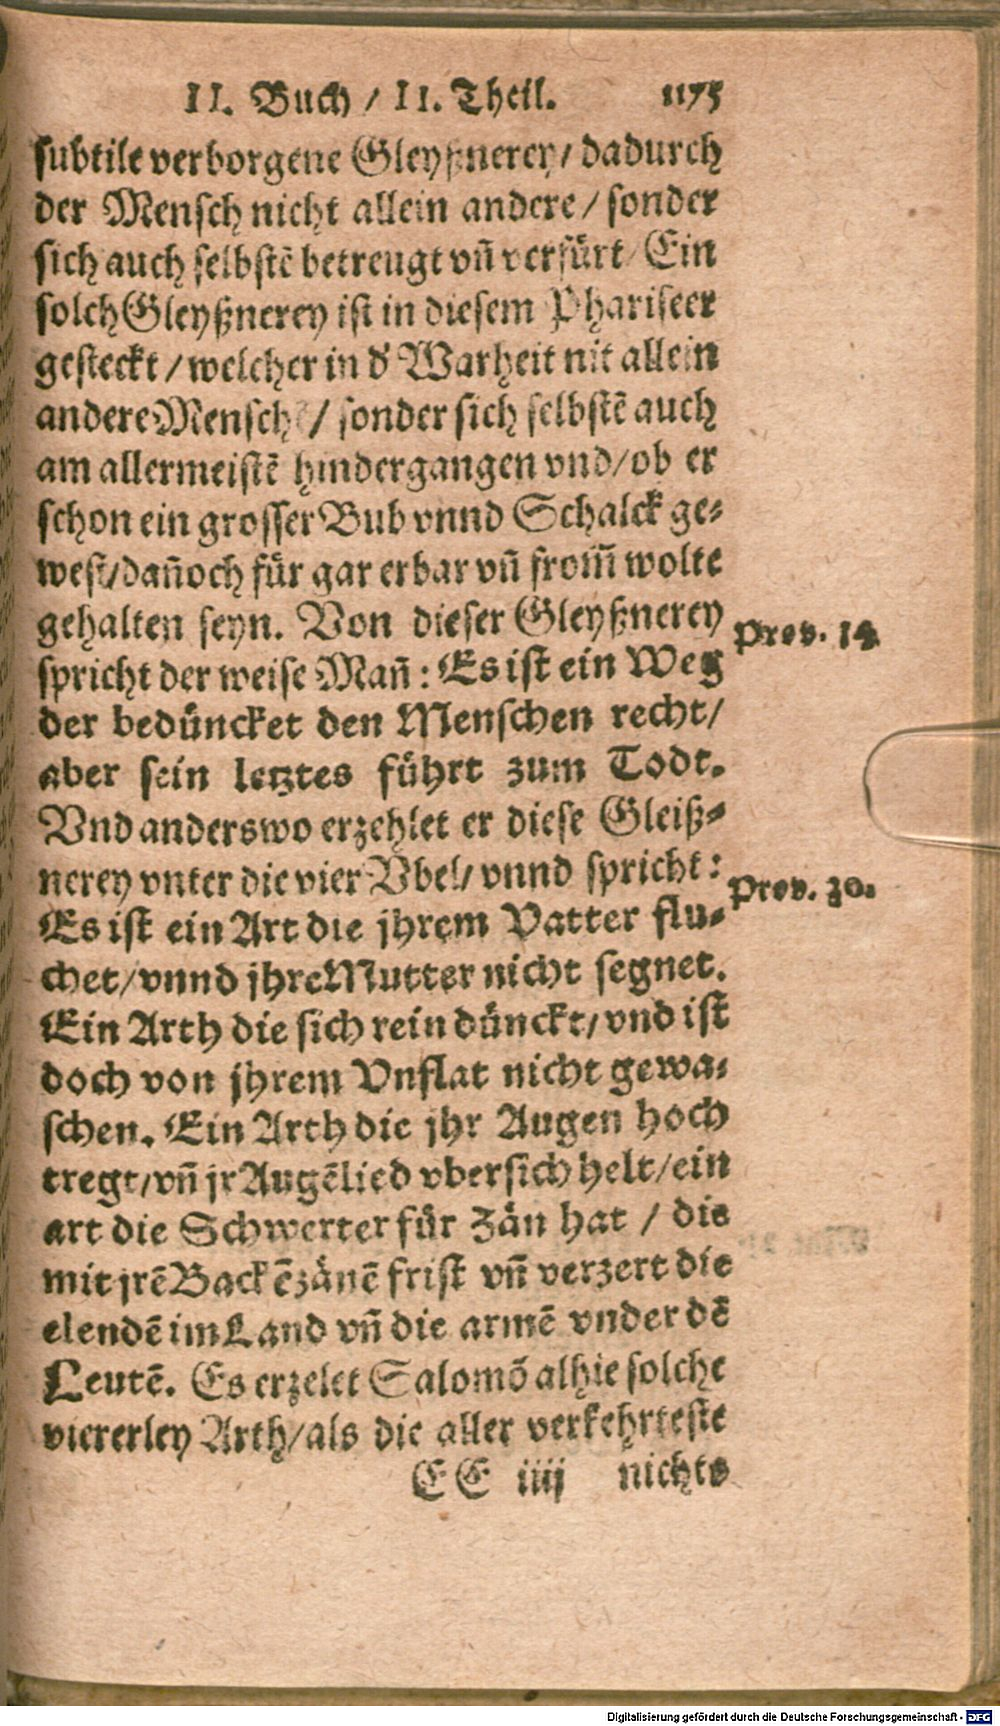 II. Buch / II. Theil. 1175
subtile verborgene Gleyßnerey / dadurch
der Mensch nicht allein andere / sonder
sich auch selbstẽ betreugt vñ verfürt / Ein
solch Gleyßnerey ist in diesem Phariseer
gesteckt / welcher in d' Warheit nit allein
andere Menschẽ / sonder sich selbstẽ auch
am allermeistẽ hindergangen vnd / ob er
schon ein grosser Bub vnnd Schalck ge-
west / dañoch für gar erbar vñ from̃ wolte
gehalten seyn. Von dieser Gleyßnerey
Prov. 14.
spricht der weise Mañ: Es ist ein Weg
der bedüncket den Menschen recht /
aber sein letztes führt zum Todt.
Vnd anderswo erzehlet er diese Gleiß-
nerey vnter die vier Vbel / vnnd spricht:
Prov. 30.
Es ist ein Art die jhrem Vatter flu-
chet / vnnd jhre Mutter nicht segnet.
Ein Arth die sich rein dünckt / vnd ist
doch von jhrem Vnflat nicht gewa-
schen. Ein Arth die jhr Augen hoch
tregt / vñ jr Augẽlied vbersich helt / ein
art die Schwerter für Zän hat / die
mit jrẽ Backẽzänẽ frist vñ verzert die
elendẽ im Land vñ die armẽ vnder dẽ
Leutẽ. Es erzelet Salomõ alhie solche
viererley Arth / als die aller verkehrteste
EE iiij nichts
Digitalisierung gefördert durch die Deutsche Forschungsgemeinschaft - DFG